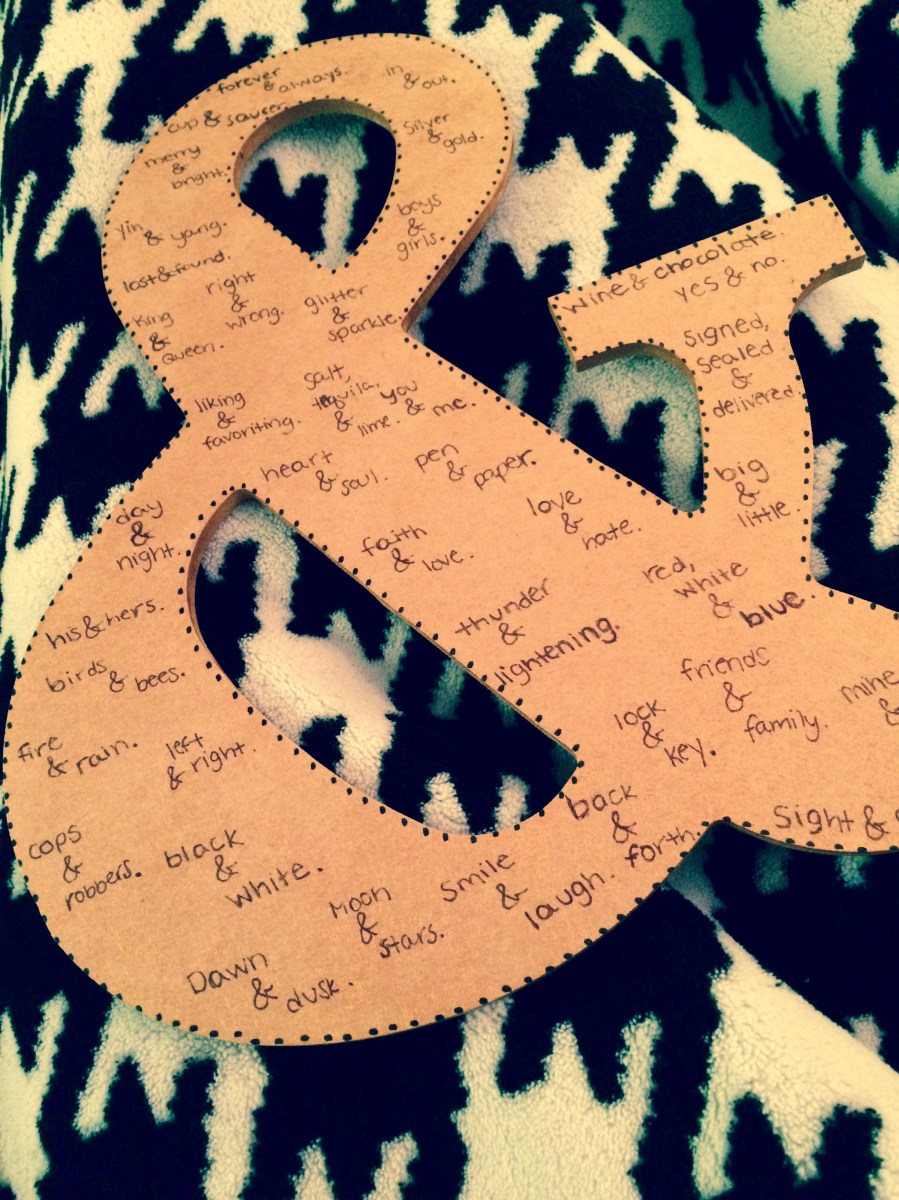 forever
& always.
in
& out.
cup & saucer.
silver
&
gold.
merry
&
bright.
boys
&
girls.
yin
& yang.
lost & found.
right
&
wrong.
glitter
&
sparkle.
King
&
Queen.
wine & chocolate.
yes & no.
signed,
sealed
&
delivered.
liking
&
favoriting.
salt,
tequila,
&
lime.
you
& me.
heart
& soul.
pen
&
paper.
big
&
little.
day
&
night.
faith
&
love.
love
&
hate.
his & hers.
thunder
&
lightening.
red,
white
&
blue.
birds
& bees.
friends
&
family.
mine
&
lock
&
key.
fire
& rain.
left
& right.
back
&
forth.
Sight &
cops
&
robbers.
black
&
white.
Moon
&
stars.
Smile
&
laugh.
Dawn
&
dusk.